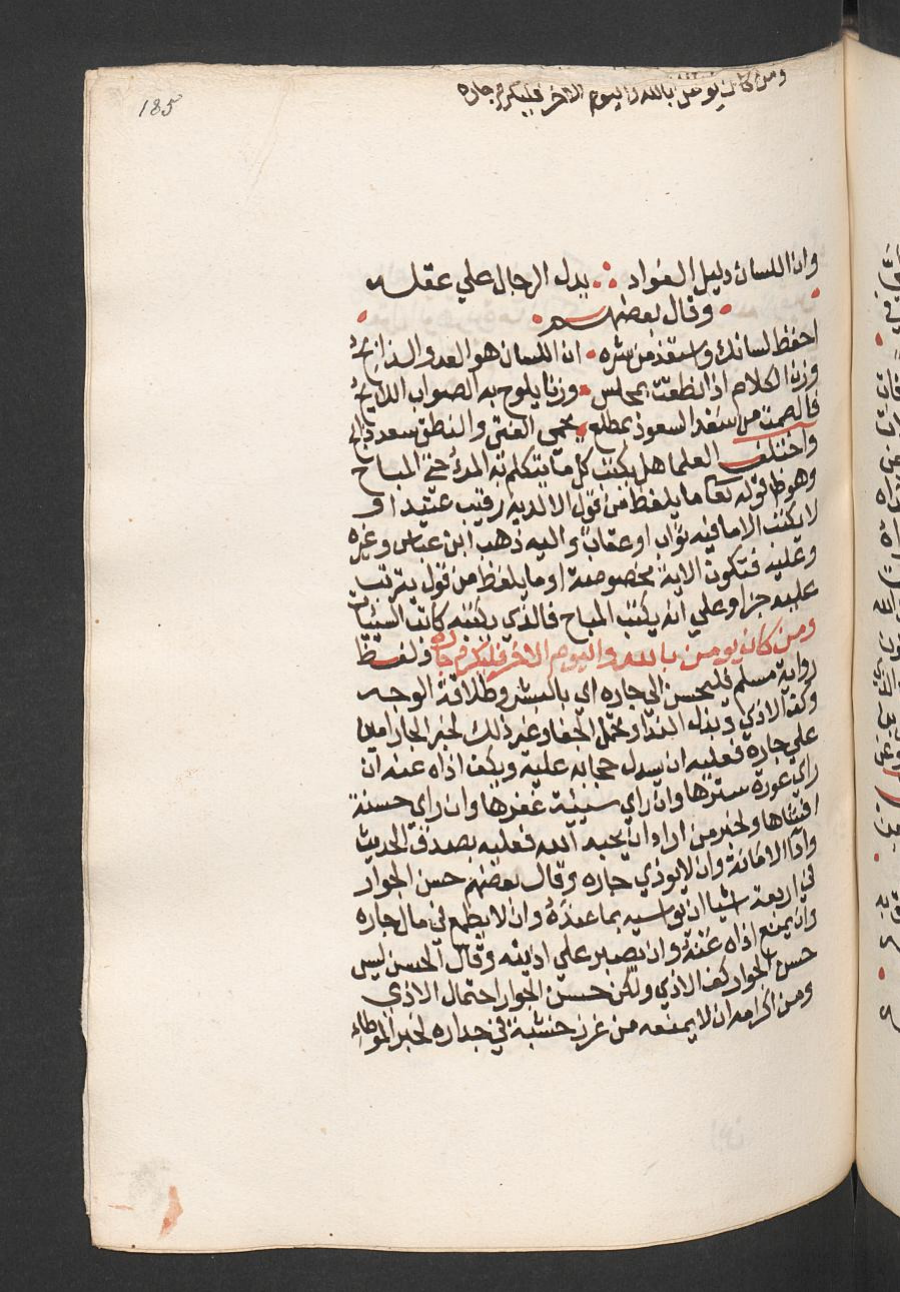 ومن كان يومن بالله واليوم الاخر فليكرم جاره
185
وان اللسان دليل الفواد ∴ يدل الرجال علي عقله
وقال بعضهم
احفظ لسانك واستعذ من شره • ان اللسان هو العدو الذابح
وزن الكلام اذا نطقت بمجلس • وزنا يلوح به الصواب اللايح
فالصمت من سعد السعود بمطلع • يحمي الفتي والنطق سعد ذابح
واختلف العلما هل يكتب كل ما يتكلم به المرء حتي المباح
وهو ظا قوله تعا ما يلفظ من قول الا لديه رقيب عتيد او
لا يكتب الا ما فيه ثواب او عقاب واليه ذهب ابن عباس وغيره
وعليه فتكون الاية مخصوصة او ما يلفظ من قول يترتب
عليه جزا وعلي انه يكتب المباح فالذي يكتبه كاتب السيئات
ومن كان يومن بالله واليوم الاخر فليكرم جاره ولفظ
رواية مسلم فليحسن الي جاره اي بالبشر وطلاقة الوجه
وكف الاذي وبذل الندا وتحمل الجفا وغير ذلك لخبر الجار امين
علي جاره فعليه ان يسدل حجابه عليه ويكف اذاه عنه ان
راي عورة سترها وان راي سيئة غفرها وان راي حسنة
افشاها ولخبر من اراد ان يحبه الله فعليه بصدق الحديث
وادا الامانة وان لا يوذي جاره وقال بعضهم حسن الجوار
في اربعة اشيا ان يواسيه بما عنده وان لا يطمع في مال جاره
وان يمنع اذاه عنه وان يصبر علي اذيته وقال الحسن ليس
حسن الجوار كف الاذي ولكن حسن الجوار احتمال الاذي
ومن اكرامه ان لا يمنعه من غرز خشبة في جداره لخبر الموطاء